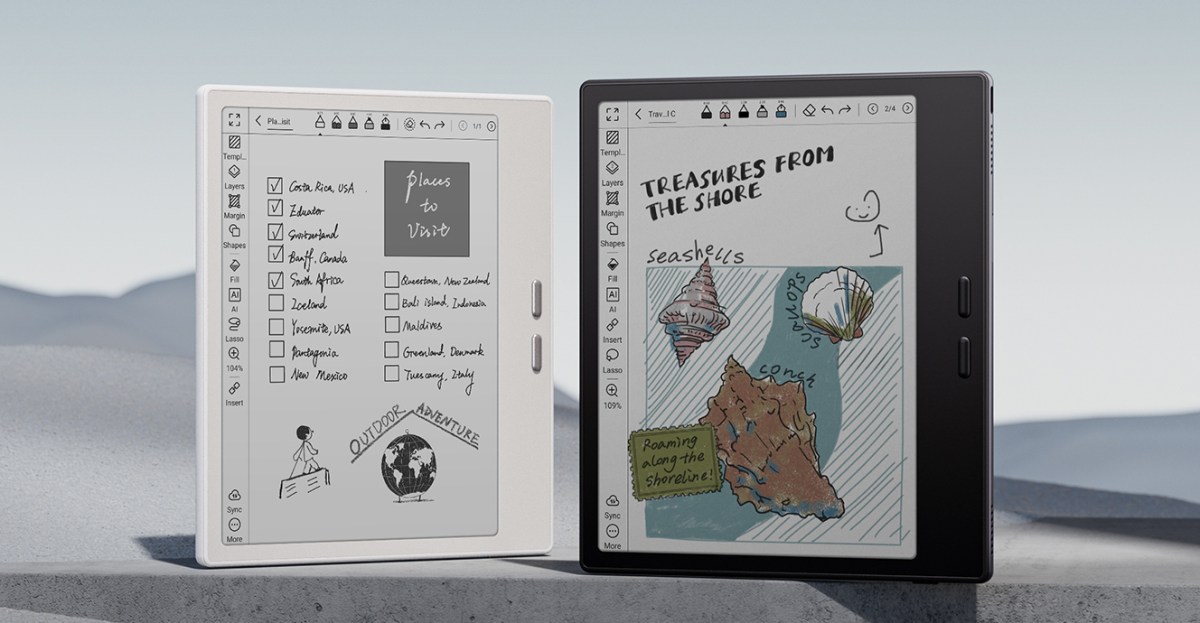 Pla...isit
1/1
Templ...
Layers
Margin
Shapes
Fill
AI
AI
Lasso
104%
Insert
Sync
More
Places
to
Visit
Costa Rica, USA
Eduator
Switzerland
Banff, Canada
South Africa
Iceland
Yosemite, USA
Pantagonia
New Mexico
Queenstown, New Zealand
Bali island, Indonesia
Maldives
Greenland, Denmark
Tuescany, Italy
OUTDOOR ADVENTURE
Trav...l C
2/4
Templ...
Layers
Margin
Shapes
Fill
AI
AI
Insert
Lasso
109%
Sync
More
TREASURES FROM
THE SHORE
seashells
scallops
conch
Roaming
along the
shoreline!